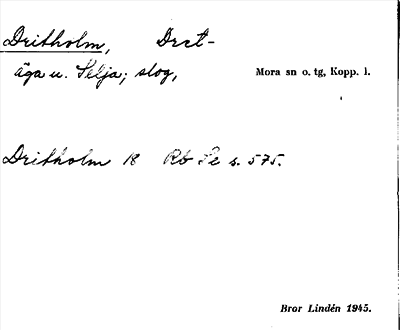 Dritholm, Drct-
äga u. Selja; slog,
Mora sn o. tg, Kopp. l.
Dritholm 18 Rb Se s. 575.
Bror Lindén 1945.